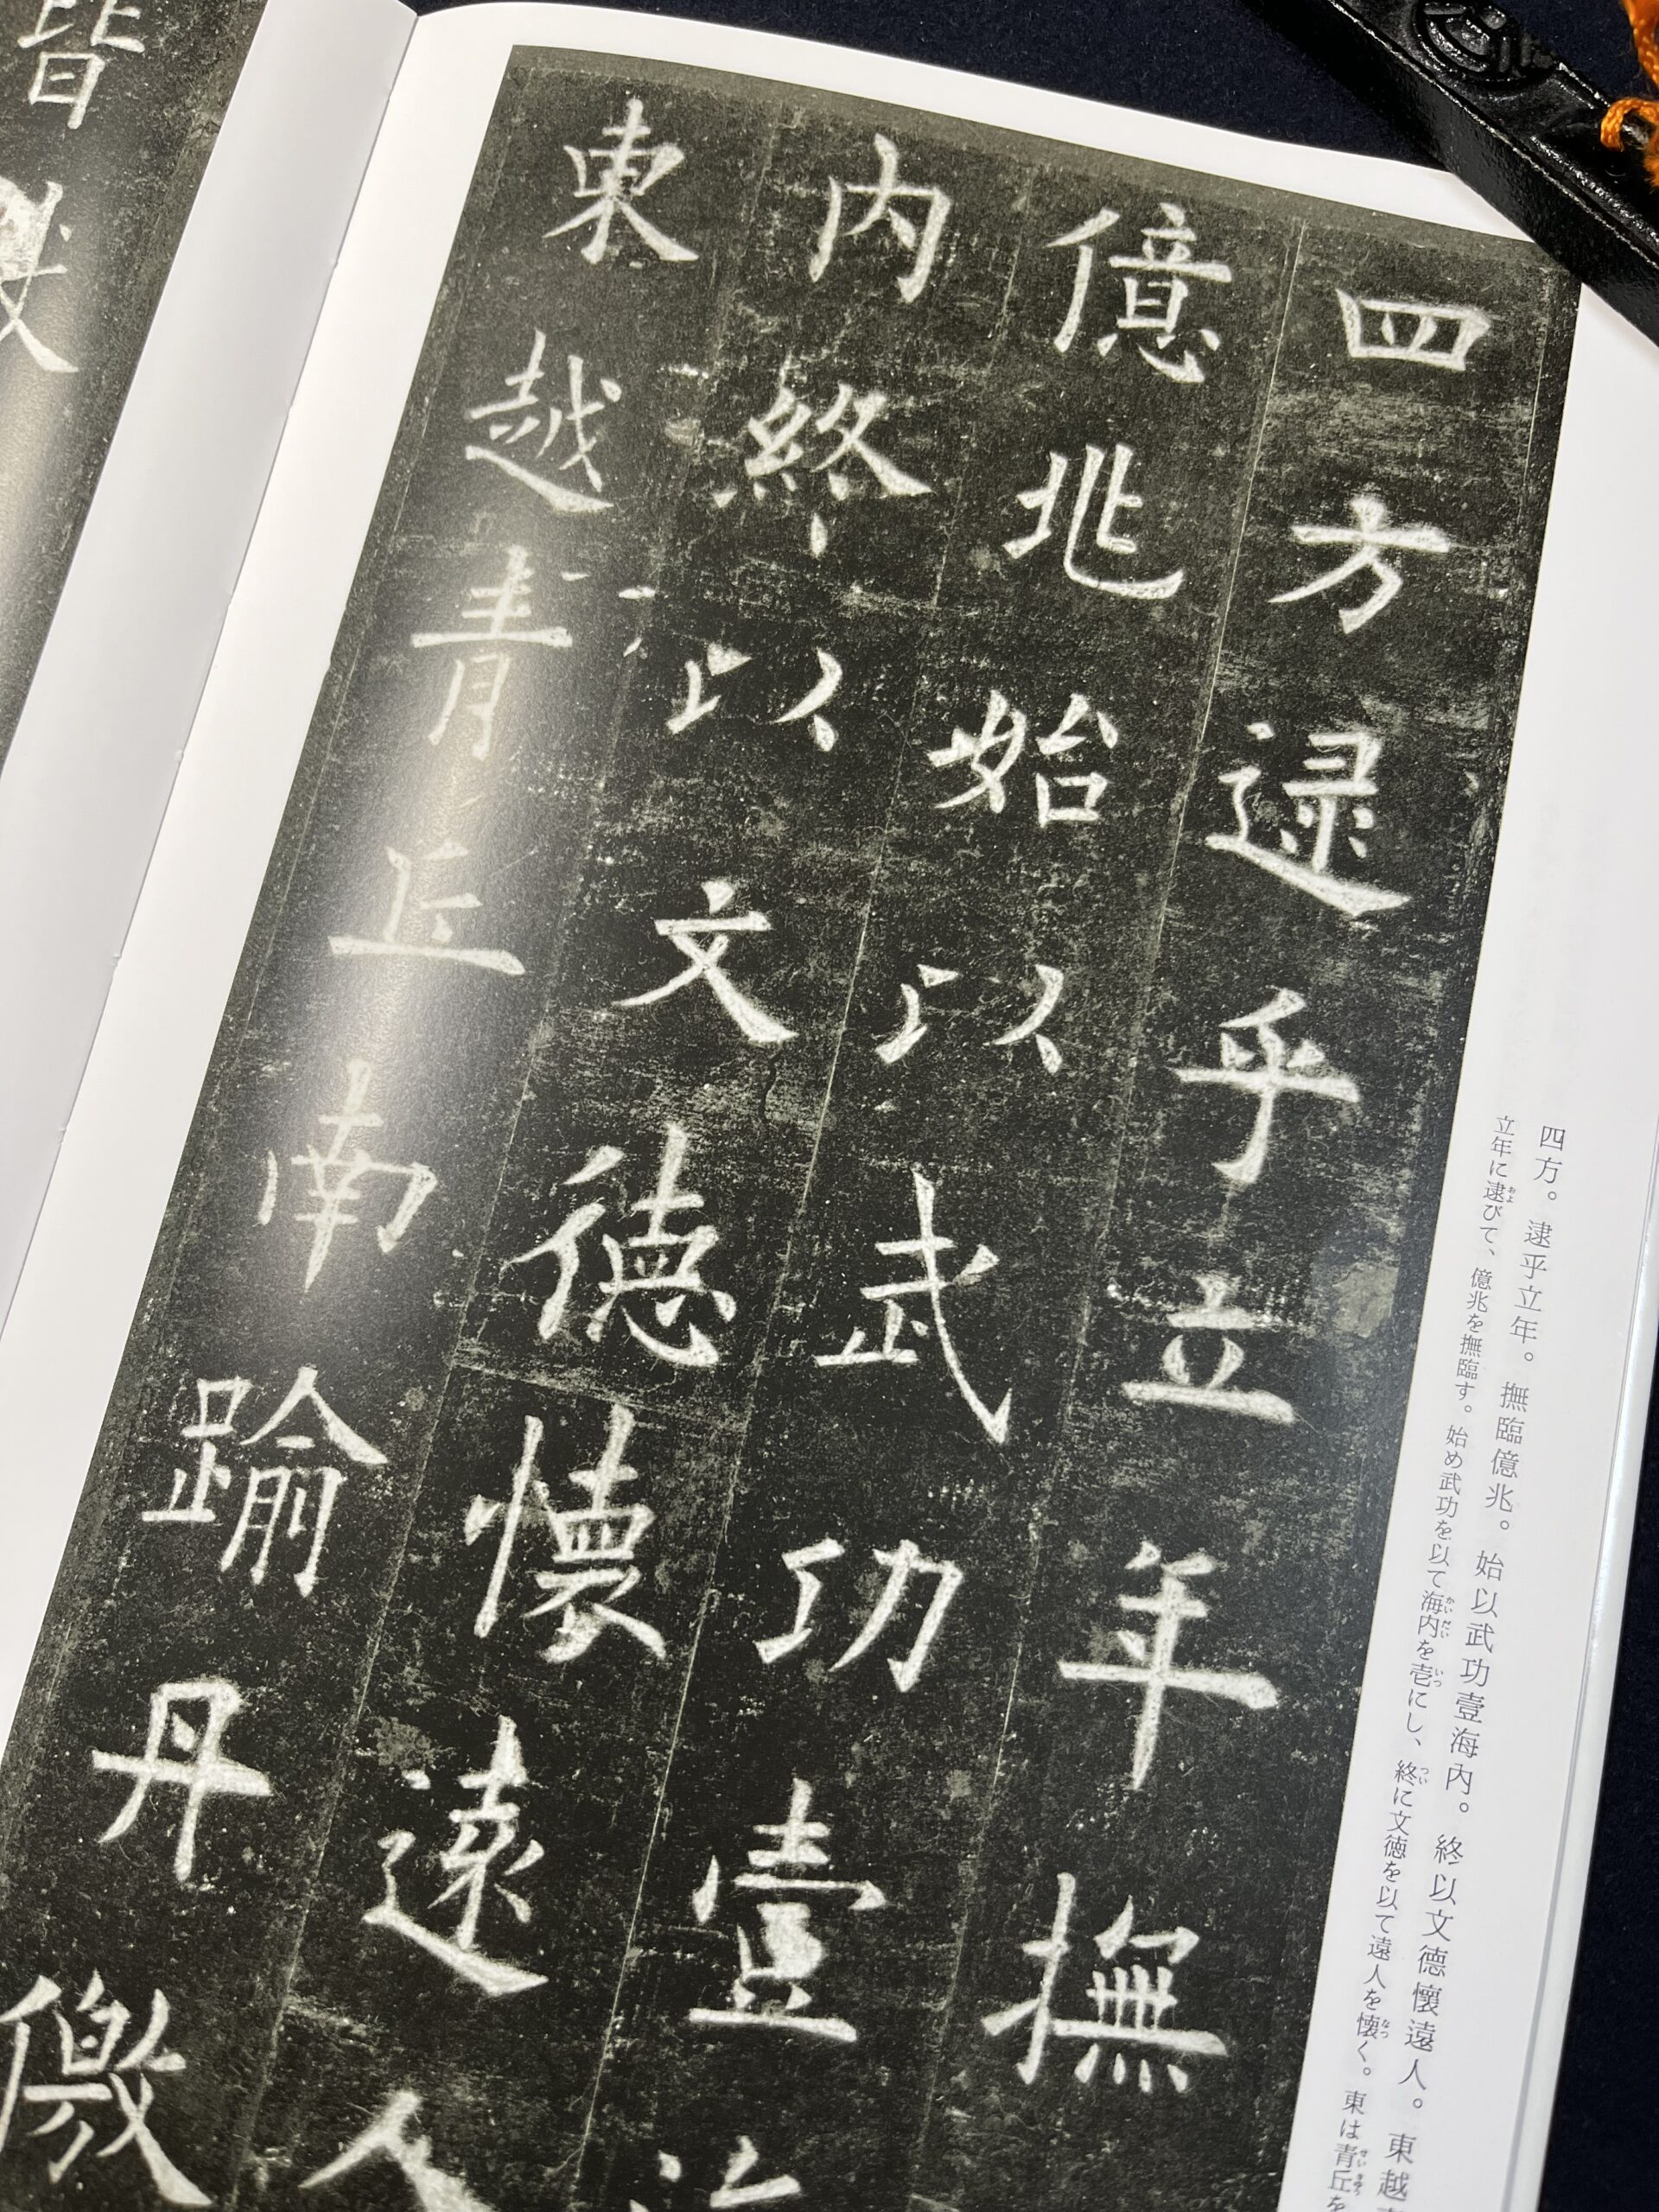 四方。逮乎立年。撫臨億兆。始以武功壹海內。終以文德懷遠人。東越
立年に逮びて、億兆を撫臨す。始め武功を以て海内を壱にし、終に文徳を以て遠人を懐く。東は青丘を
四方逮乎立年撫
億兆始以武功壹
內終以文德懷遠人
東越青丘南踰丹儌
皆